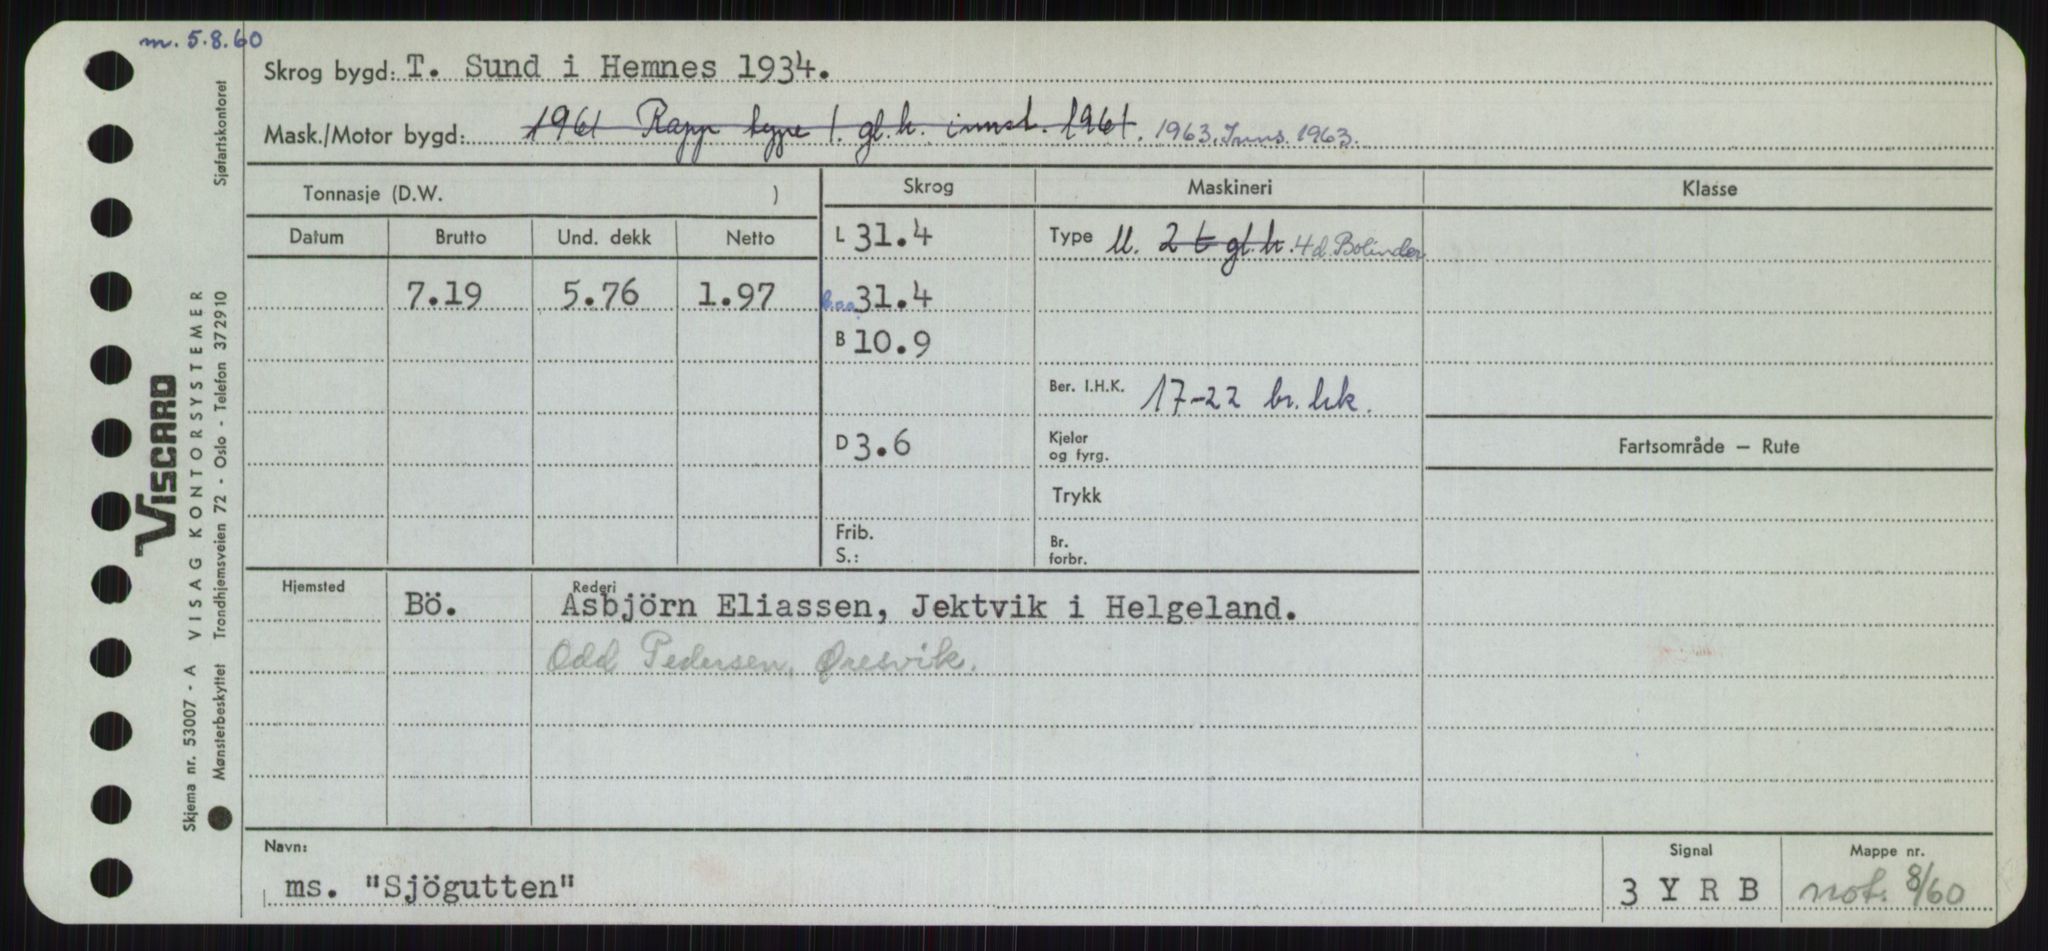 m. 5.8.60
Skrog bygd: T. Sund i Hemnes 1934.
Mask./Motor bygd: 1961 Rapp type 1. gl.h. innst. 1961. 1963. Inns. 1963.
Tonnasje (D.W. )
Skrog Maskineri Klasse
Datum Brutto Und. dekk Netto
L 31.4 Type M. 2 t gl.h. 4 d. Bolinder
7.19 5.76 1.97 l.o.a. 31.4
B 10.9
Ber. I.H.K. 17-22 br. hk.
D 3.6 Kjeler og fyrg.
Fartsområde — Rute
Trykk
Frib. S.: Br. forbr.
Hjemsted Rederi
Bö. Asbjörn Eliassen, Jektvik i Helgeland.
Odd Pedersen, Øresvik.
Navn: Signal Mappe nr.
ms. "Sjögutten" 3 Y R B not. 8/60
Skjema nr. 53007 - A VISAG KONTORSYSTEMER
VISCARD
Mønsterbeskyttet Trondhjemsveien 72 - Oslo - Telefon 372910 Sjøfartskontoret